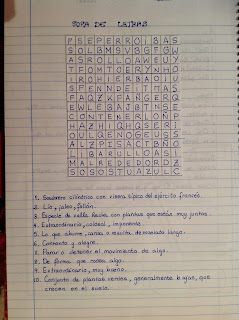 SOPA DE LETRAS
P S E P E R R O I B A S
S O L B M S V B G F G W
A S R O L L O A W E U Y
T F O M T O E R Y N H O
I R O H I E R B A O L U
S P E N N D E I T M A S
F A Q Z K F A Ñ G E R Q
E W L E B A J B T N S E
C O N T E N E R L O Ñ P
H A Z H I Q H Q S E R I
O U L Q E N O G E U G S
A L Z P I S A C T B Ñ O
L I B A R I L L O A S I
M A L R E D E D O R D Z
S O S O S T U A Z U L C
1. Sombrero cilíndrico con visera típico del ejército francés.
2. Lío, jaleo, follón.
3. Especie de valla hecha con plantas que están muy juntas.
4. Extraordinario, colosal, imponente.
5. Lo que aburre, cansa o resulta demasiado largo.
6. Contento y alegre.
7. Parar o detener el movimiento de algo.
8. De forma que rodea algo.
9. Extraordinario, muy bueno.
10. Conjunto de plantas verdes, generalmente bajas, que
crecen en el suelo.